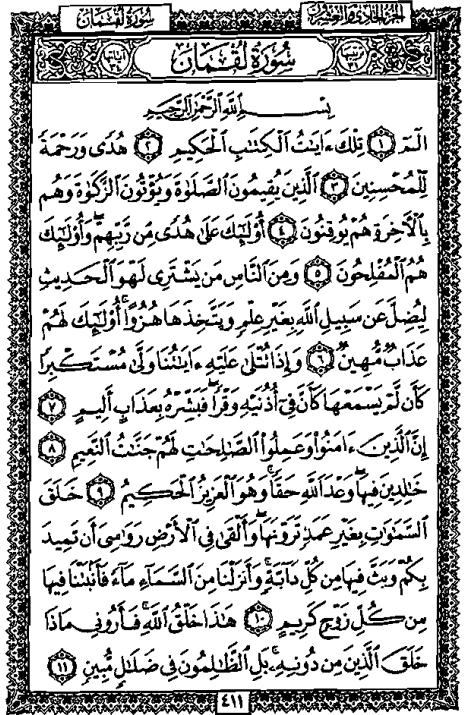 سُورَةُ لُقْمَان
الجزء الحادي والعشرون
ترتيبها ٣١
سُورَةُ لُقْمَان
آياتها ٣٤
بِسْمِ اللَّهِ الرَّحْمَٰنِ الرَّحِيمِ
الٓمٓ ١ تِلْكَ ءَايَٰتُ ٱلْكِتَٰبِ ٱلْحَكِيمِ ٢ هُدًى وَرَحْمَةً
لِّلْمُحْسِنِينَ ٣ ٱلَّذِينَ يُقِيمُونَ ٱلصَّلَوٰةَ وَيُؤْتُونَ ٱلزَّكَوٰةَ وَهُم
بِٱلْأَخِرَةِ هُمْ يُوقِنُونَ ٤ أُوْلَٰٓئِكَ عَلَىٰ هُدًى مِّن رَّبِّهِمْ ۖ وَأُوْلَٰٓئِكَ
هُمُ ٱلْمُفْلِحُونَ ٥ وَمِنَ ٱلنَّاسِ مَن يَشْتَرِى لَهْوَ ٱلْحَدِيثِ
لِيُضِلَّ عَن سَبِيلِ ٱللَّهِ بِغَيْرِ عِلْمٍ وَيَتَّخِذَهَا هُزُوًا ۚ أُوْلَٰٓئِكَ لَهُمْ
عَذَابٌ مُّهِينٌ ٦ وَإِذَا تُتْلَىٰ عَلَيْهِ ءَايَٰتُنَا وَلَّىٰ مُسْتَكْبِرًا
كَأَن لَّمْ يَسْمَعْهَا كَأَنَّ فِىٓ أُذُنَيْهِ وَقْرًا ۖ فَبَشِّرْهُ بِعَذَابٍ أَلِيمٍ ٧
إِنَّ ٱلَّذِينَ ءَامَنُواْ وَعَمِلُواْ ٱلصَّٰلِحَٰتِ لَهُمْ جَنَّٰتُ ٱلنَّعِيمِ ٨
خَٰلِدِينَ فِيهَا ۖ وَعْدَ ٱللَّهِ حَقًّا ۚ وَهُوَ ٱلْعَزِيزُ ٱلْحَكِيمُ ٩ خَلَقَ
ٱلسَّمَٰوَٰتِ بِغَيْرِ عَمَدٍ تَرَوْنَهَا ۖ وَأَلْقَىٰ فِى ٱلْأَرْضِ رَوَٰسِىَ أَن تَمِيدَ
بِكُمْ وَبَثَّ فِيهَا مِن كُلِّ دَآبَّةٍ ۚ وَأَنزَلْنَا مِنَ ٱلسَّمَآءِ مَآءً فَأَنۢبَتْنَا فِيهَا
مِن كُلِّ زَوْجٍ كَرِيمٍ ١٠ هَٰذَا خَلْقُ ٱللَّهِ فَأَرُونِى مَاذَا
خَلَقَ ٱلَّذِينَ مِن دُونِهِۦ ۚ بَلِ ٱلظَّٰلِمُونَ فِى ضَلَٰلٍ مُّبِينٍ ١١
٤١١